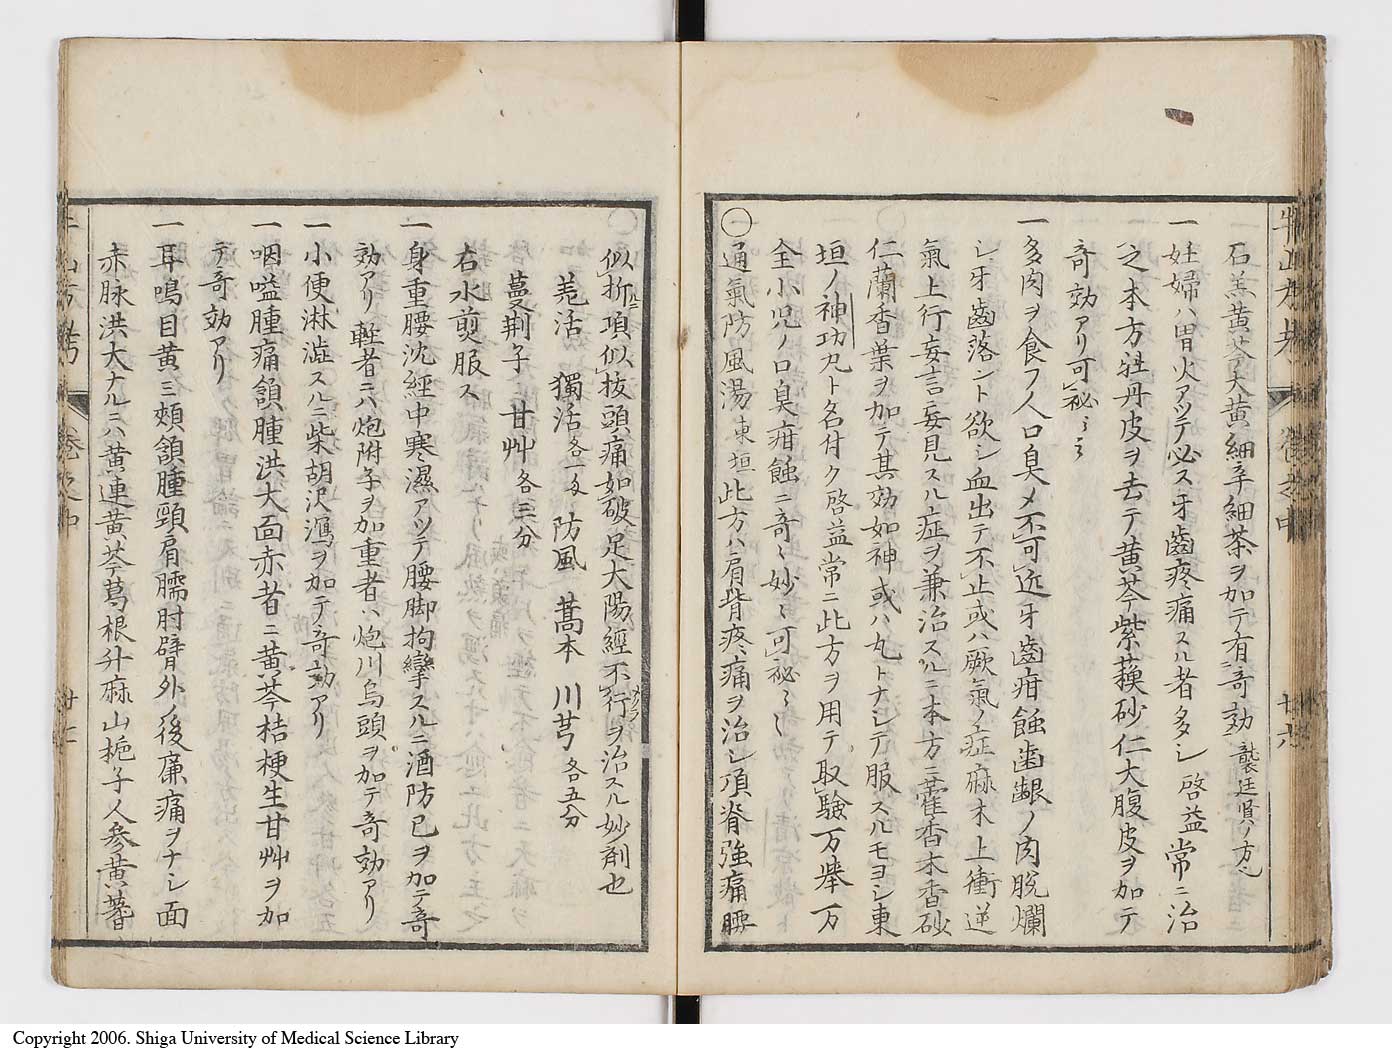 石羔黄芩大黄細辛細茶ヲ加テ有奇効 龔廷賢ノ方也
一 妊婦ハ胃火アツテ必ス牙齒疼痛スル者多シ啓益常ニ治
之本方牡丹皮ヲ去テ黄芩紫蘓砂仁大腹皮ヲ加テ
奇効アリ可秘〻〻
一 多肉ヲ食フ人口臭〆不可近牙齒疳蝕齒齦ノ肉脱爛
シ牙齒落ント欲シ血出テ不止或ハ厥氣ノ症麻木上衝逆
氣上行妄言妄見スル症ヲ兼治スルニ本方ニ藿香木香砂
仁蘭香葉ヲ加テ其効如神或ハ丸トナシテ服スルモヨシ東
垣ノ神功丸ト名付ク啓益常ニ此方ヲ用テ取驗万舉万
全小児ノ口臭疳蝕ニ奇〻妙〻可秘〻〻
㊀通氣防風湯 東垣 此方ハ肩背疼痛ヲ治シ項脊強痛腰
似折項似拔頭痛如破足太陽經不行ヲ治スル妙剤也
羗活 獨活 各一匁 防風 藁本 川芎 各五分
蔓荆子 甘艸 各三分
右水煎服ス
一 身重腰沈經中寒濕アツテ腰脚拘攣スルニ酒防已ヲ加テ奇
効アリ輕者ニハ炮附子ヲ加重者ハ炮川烏頭ヲ加テ奇効アリ
一 小便淋澁スルニ柴胡沢瀉ヲ加テ奇効アリ
一 咽嗌腫痛頷腫洪大面赤者ニ黄芩桔梗生甘艸ヲ加
テ奇効アリ
一 耳鳴目黄ニ頰頷腫頸肩臑肘臂外ノ後廉痛ヲナシ面
赤脉洪大ナルニハ黄連黄芩葛根升麻山梔子人参黄蓍
牛山方考 卷之中 廿六
Copyright 2006. Shiga University of Medical Science Library